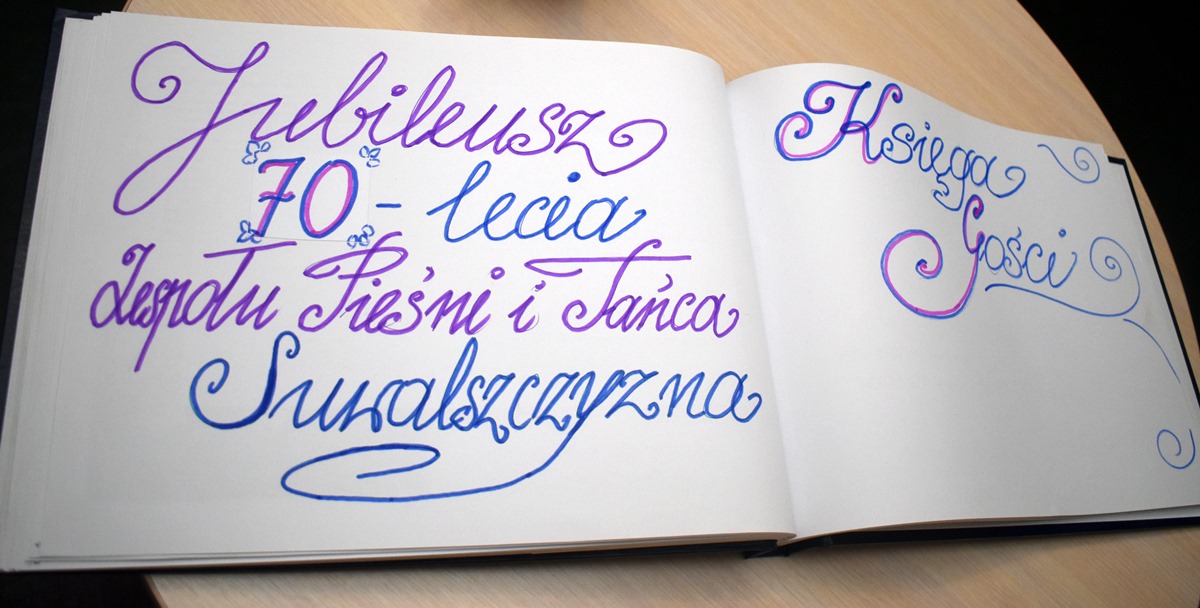 Jubileusz
70 - lecia
Zespołu Pieśni i Tańca
Suwalszczyzna
Księga
Gości